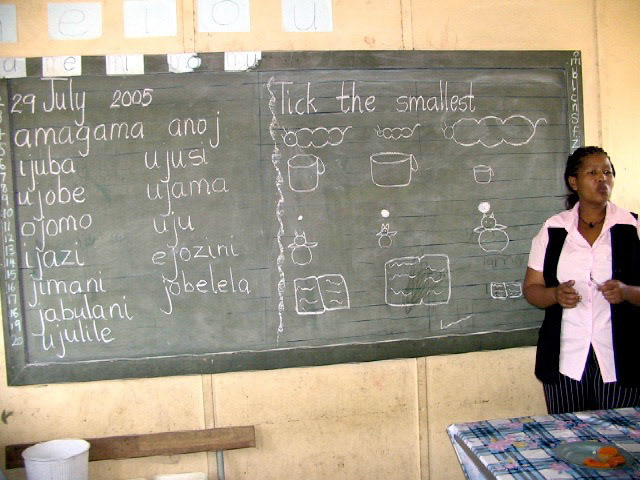 29 July 2005
amagama anoj
ijuba ujusi
ujobe ujama
ojomo uju
ijazi ejozini
jimani jobelela
jabulani
ujulile
Tick the smallest